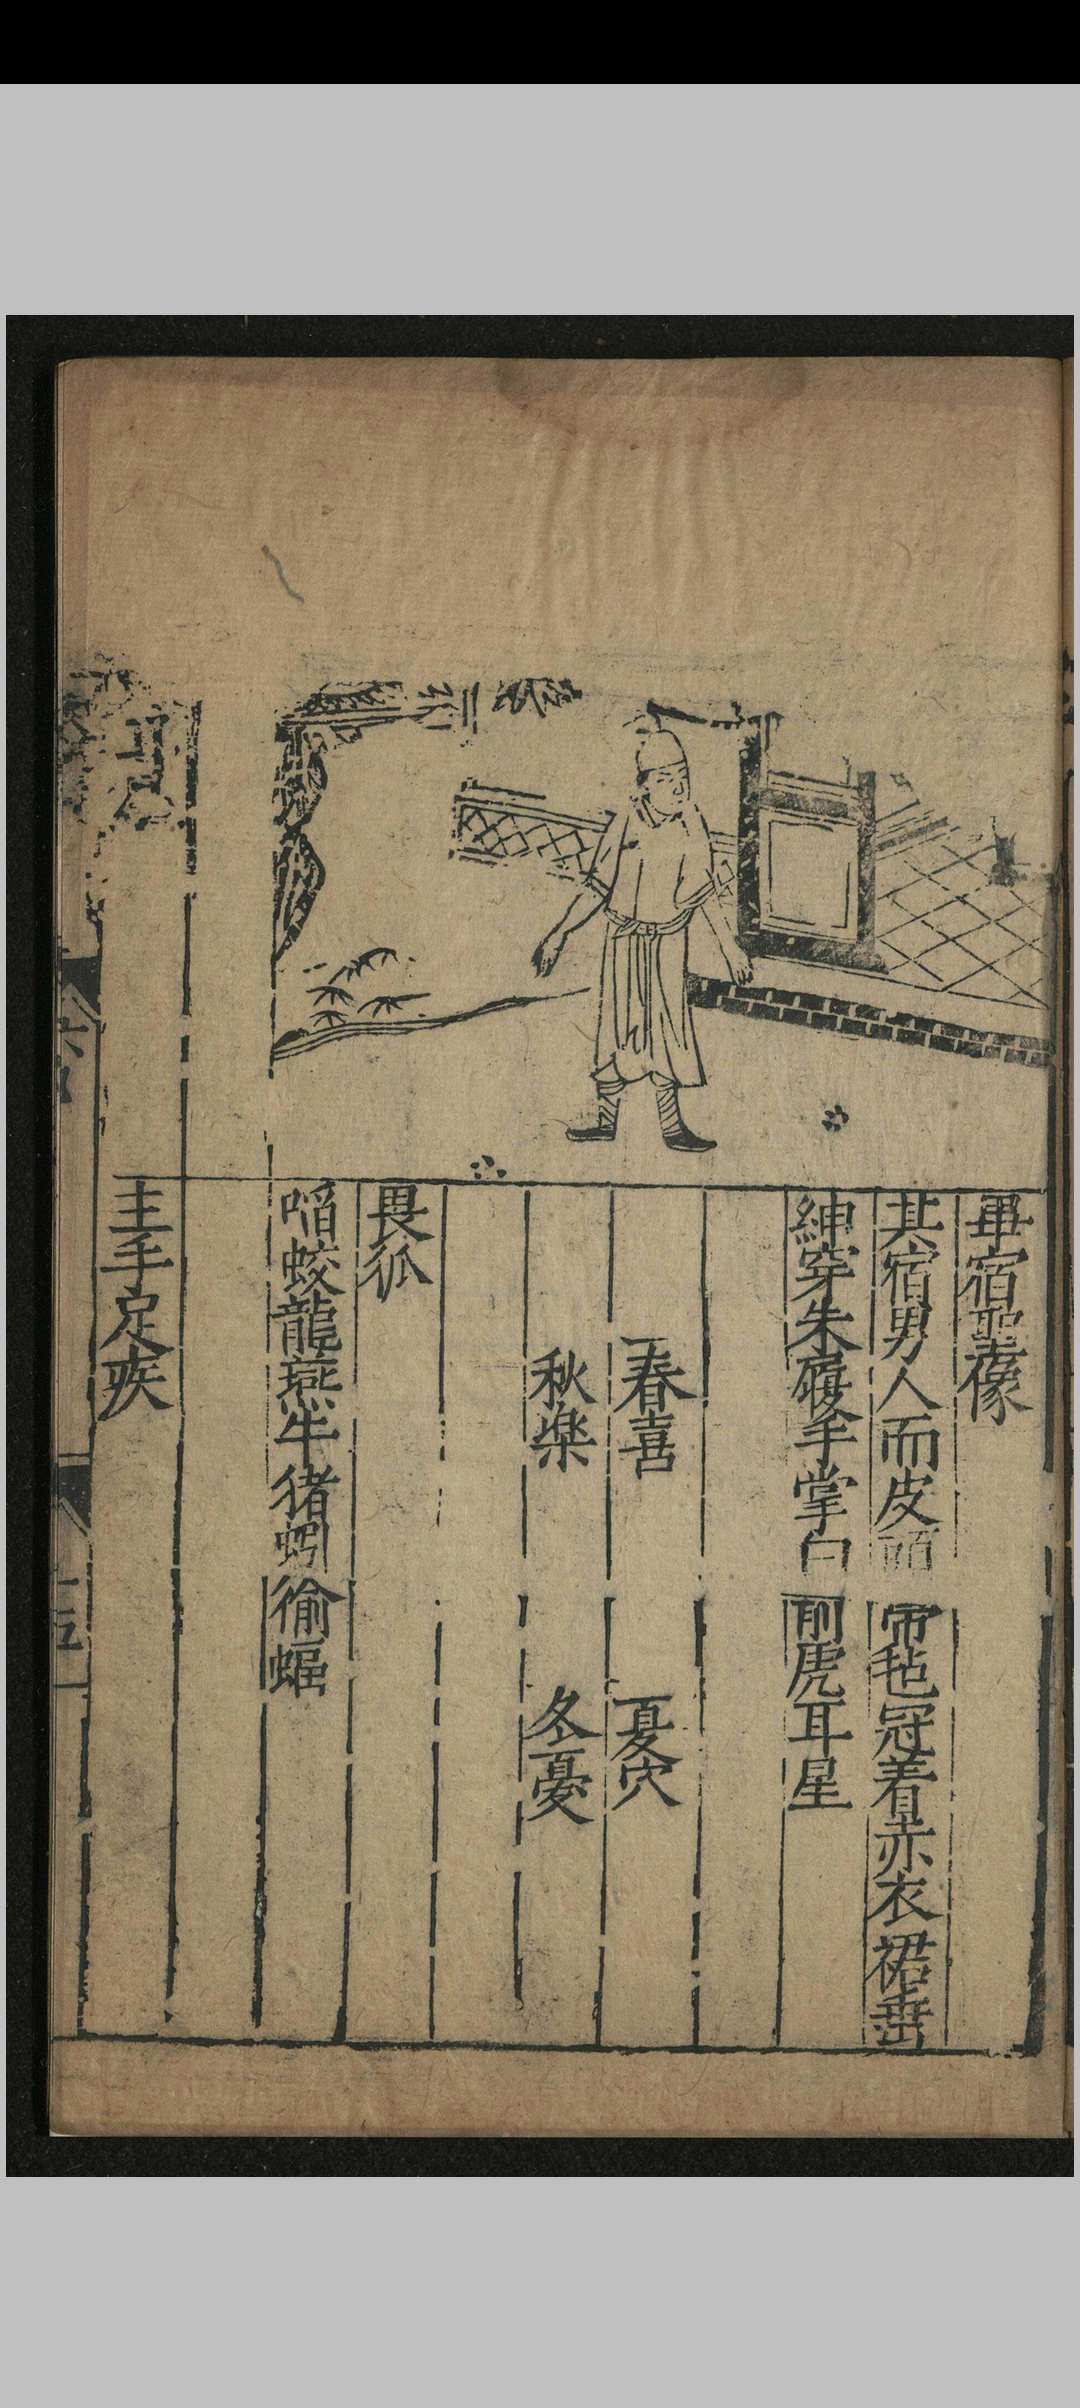 畢宿聖像
其宿男人而皮頭帶毡冠着赤衣裙垂
紳穿朱履手掌白前虎耳星
春喜　夏穴
秋楽　冬憂
畏狐
啗蛟龍燕牛猪蚓㺄蝠
主手足疾